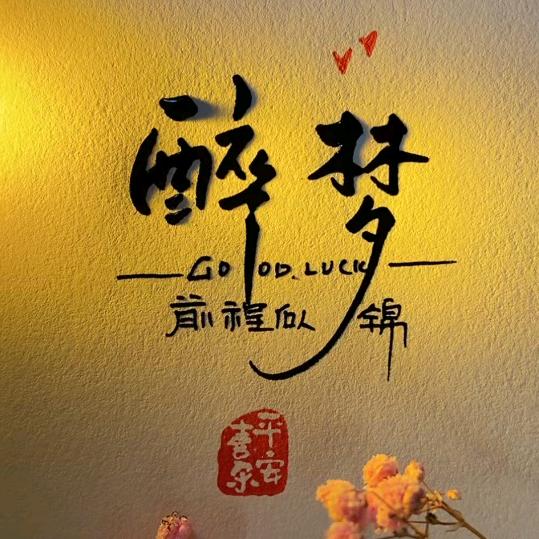 醉梦
GOOD.LUCK
前程似锦
平安
喜乐